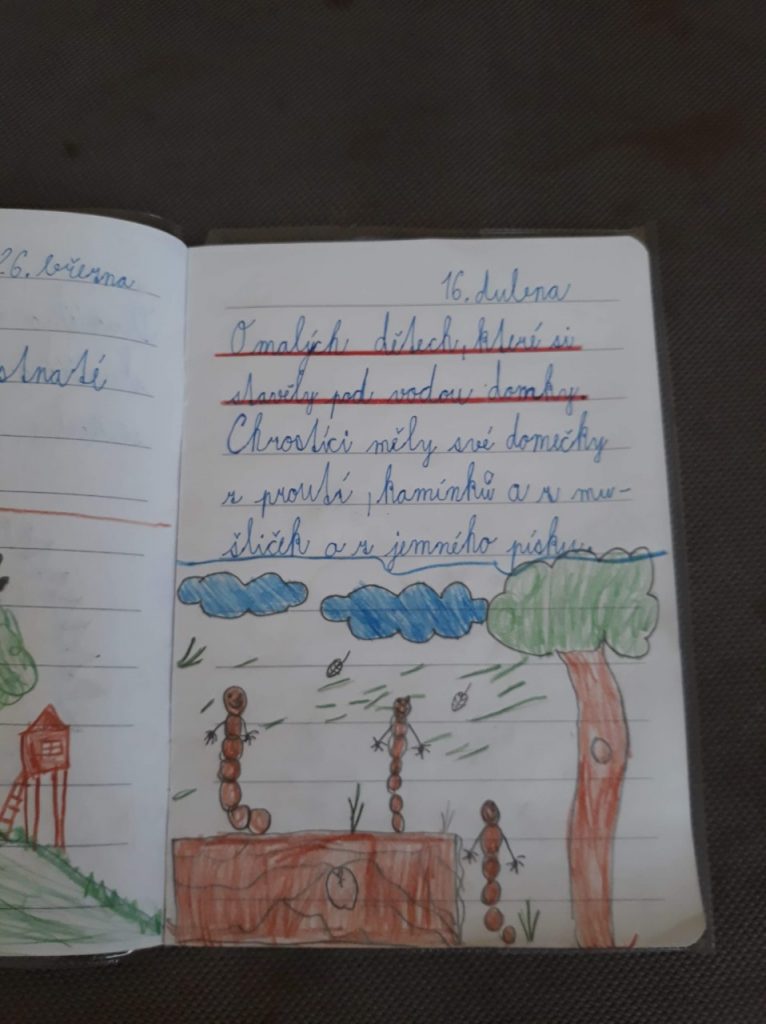 26. března
stnaté
16. dubna
O malých dětech, které si
stavěly pod vodou domky.
Chrostíci měly své domečky
z proutí, kamínků a z mu-
šliček a z jemného písku.